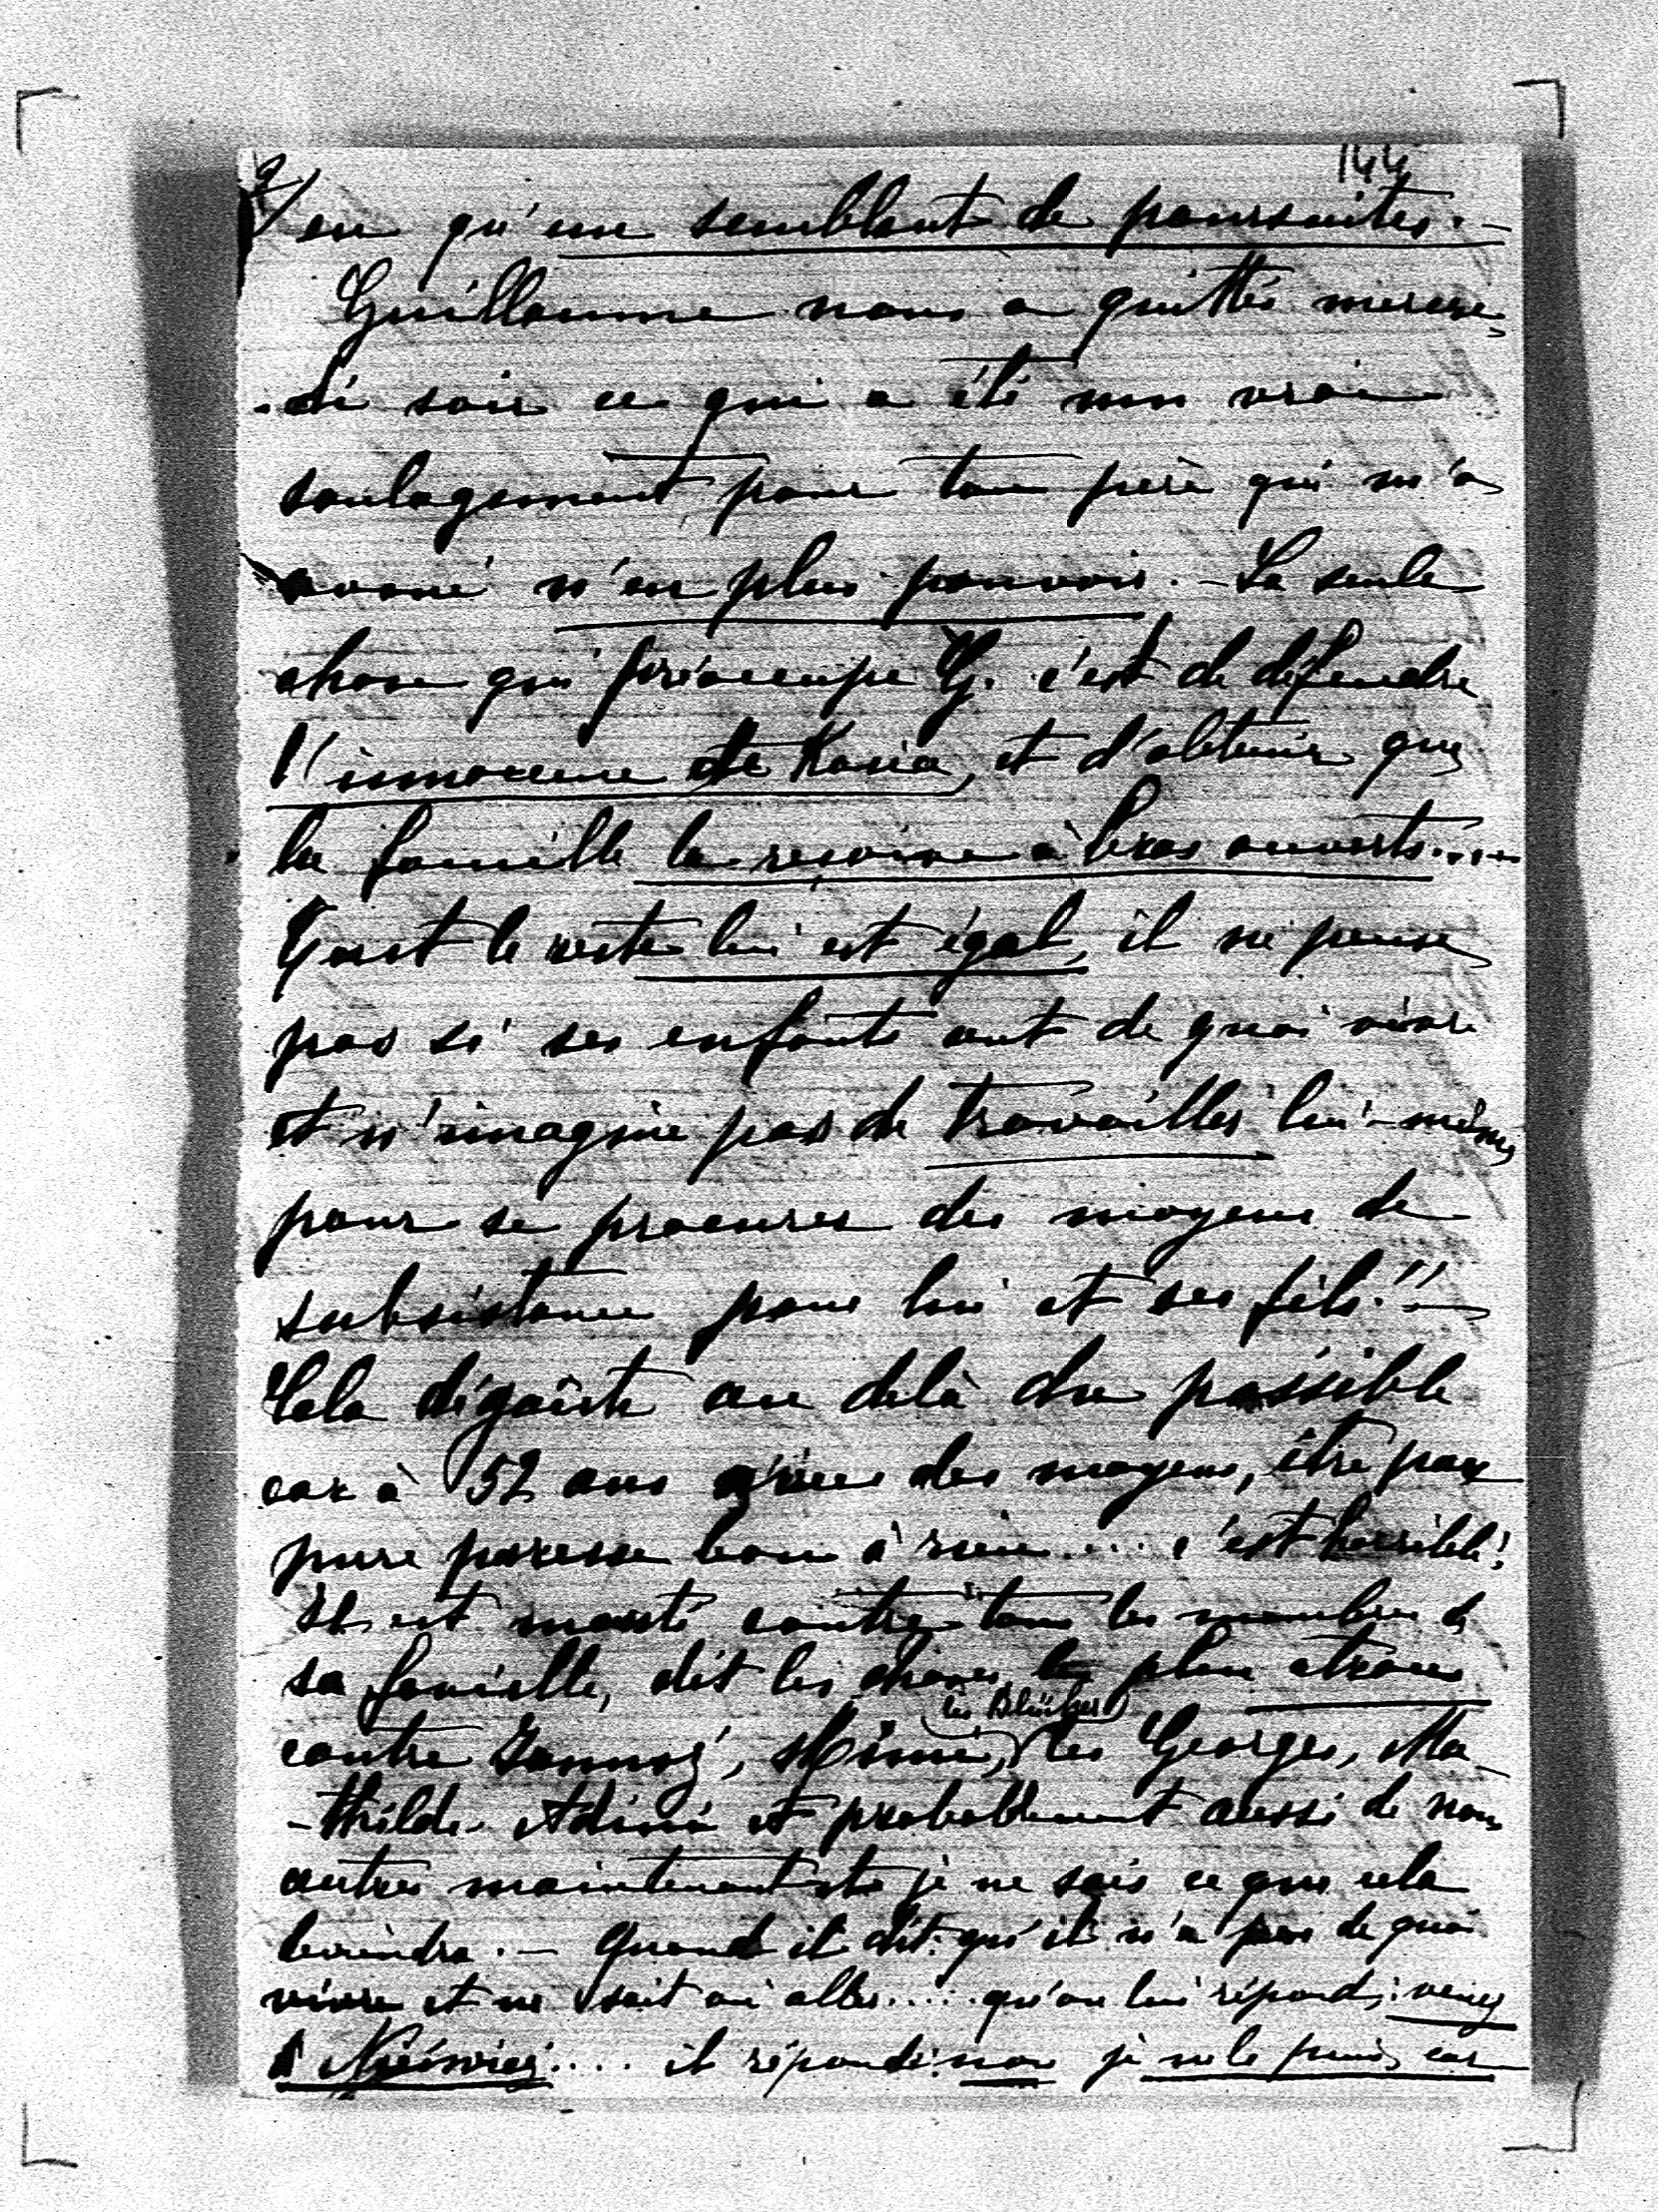 144
2/ eu qu'un semblant de poursuites. –
Guillaume nous a quittés mercre-
-di soir ce qui a été un vrai
soulagement pour ton père qui m'a
avoué n'en plus pouvoir. – La seule
chose qui préoccupe G. c'est de défendre
l'innocence de Kasia, et d'obtenir que
la famille la reçoive à bras ouverts....
Tout le reste lui est égal, il ne pense
pas si ses enfants ont de quoi vivre
et n'imagine pas de travailler lui-même
pour se procurer des moyens de
subsistance pour lui et ses fils!! –
Cela dégoûte au delà du possible
car à 52 ans des moyens, être par
pure paresse bon à rien.... c'est horrible!
Il est monté contre tous les membres de
sa famille, dit les choses les plus atroces
les Blücher
contre , Mimi, les Georges, Ma-
-thilde et probablement aussi de nous
autres maintenant etc je ne sais ce que cela
deviendra. – Quand il dit qu'il n'a pas de quoi
vivre et ne sait où aller..... qu'on lui répond: venez
à Nieśwież.... il répond: non je ne le puis, car